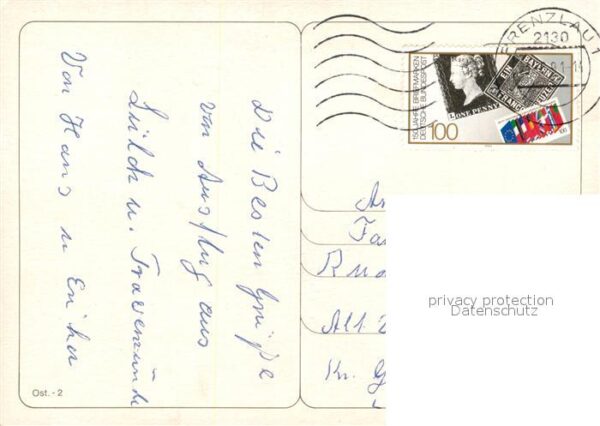 Die Besten Grüße
von Ausflug aus
Lübeck u. Travemünde
Von Hans u Erika
Ost. - 2
PRENZLAU 1
2130
150 JAHRE BRIEFMARKEN
DEUTSCHE BUNDESPOST
100
ONE PENNY
BAYERN
EIN
100
An
Fa
Kr. G
privacy protection
Datenschutz